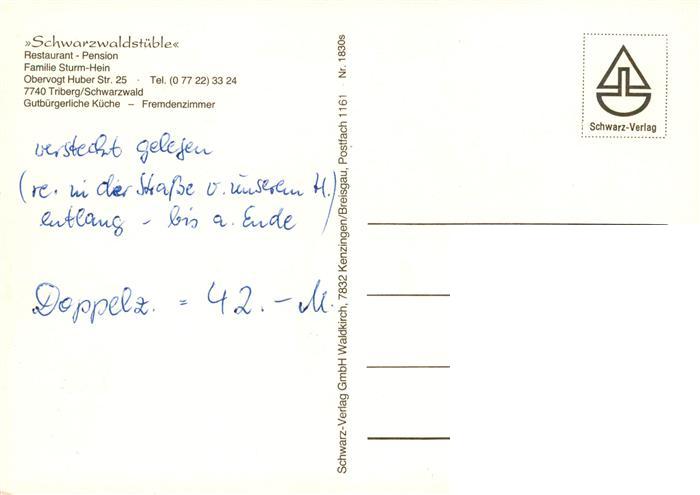 »Schwarzwaldstüble«
Restaurant - Pension
Familie Sturm-Hein
Obervogt Huber Str. 25 · Tel. (0 77 22) 33 24
7740 Triberg/Schwarzwald
Gutbürgerliche Küche – Fremdenzimmer
versteckt gelegen
(re. in der Straße v. unserem H.
entlang - bis a. Ende)
Doppelz. = 42.- M.
Schwarz-Verlag GmbH Waldkirch, 7832 Kenzingen/Breisgau, Postfach 1161 · Nr. 1830s
Schwarz-Verlag